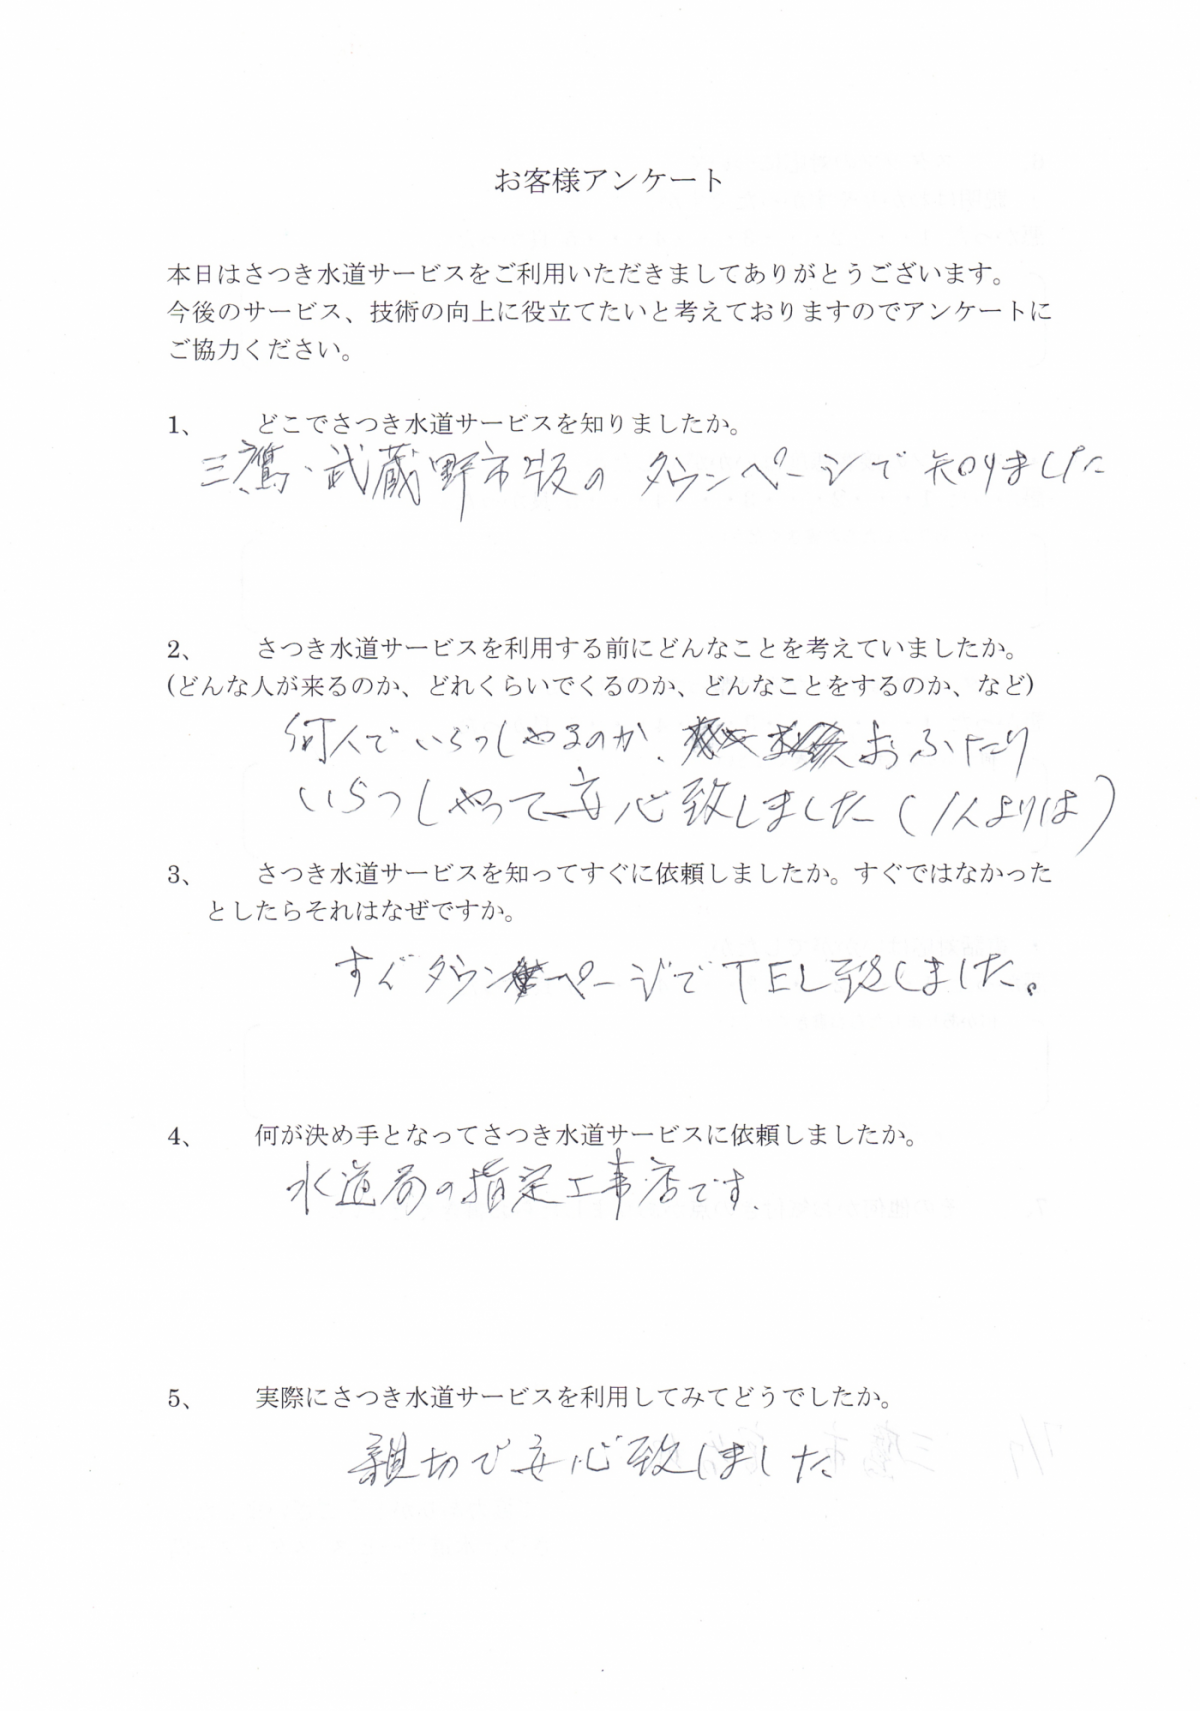 お客様アンケート
本日はさつき水道サービスをご利用いただきましてありがとうございます。
今後のサービス、技術の向上に役立てたいと考えておりますのでアンケートに
ご協力ください。
1、 どこでさつき水道サービスを知りましたか。
三鷹・武蔵野市版の タウンページで 知りました
2、 さつき水道サービスを利用する前にどんなことを考えていましたか。
(どんな人が来るのか、どれくらいでくるのか、どんなことをするのか、など)
何人で いらっしゃるのか、おふたり
いらっしゃって 安心致しました(1人よりは)
3、 さつき水道サービスを知ってすぐに依頼しましたか。すぐではなかった
としたらそれはなぜですか。
すぐ タウンページで TEL致しました。
4、 何が決め手となってさつき水道サービスに依頼しましたか。
水道局の指定工事店です.
5、 実際にさつき水道サービスを利用してみてどうでしたか。
親切で 安心致しました